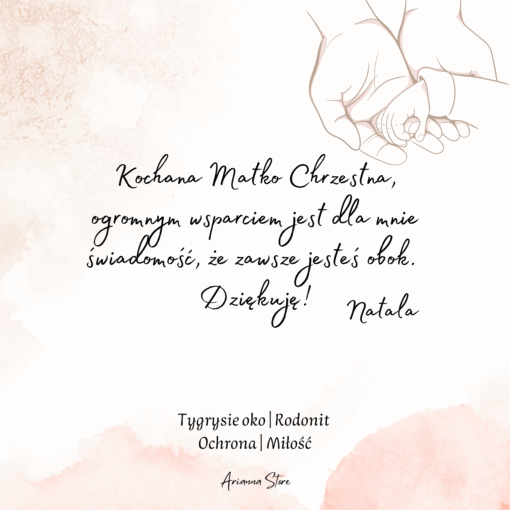 Kochana Matko Chrzestna,
ogromnym wsparciem jest dla mnie
świadomość, że zawsze jesteś obok.
Dziękuję!
Natala
Tygrysie oko | Rodonit
Ochrona | Miłość
Arianna Store